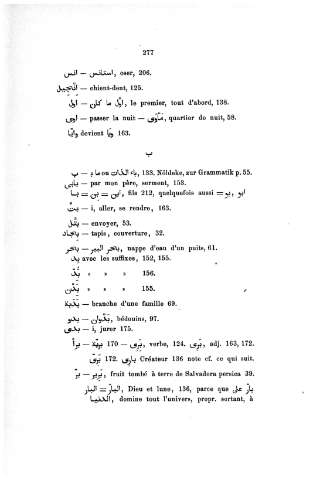 277
انس — استانس, oser, 206.
— chient-dent, 125.
اول — اول ما كان, le premier, tout d'abord, 138.
اوى — passer la nuit — مأوى, quartier de nuit, 58.
وايّا devient وِيّا 163.
ب
ب — ou باء الذات, 133. Nöldeke, zur Grammatik p. 55.
بابى — par mon père, serment, 158.
ابو, بو = fils 212, quelquefois aussi
بتّ — i, aller, se rendre, 163.
— envoyer, 53.
بجاد — tapis, couverture, 32.
بحر — بحر البير, nappe d'eau d'un puits, 61.
بد avec les suffixes, 152, 155.
» » » 156.
» » » 155.
— branche d'une famille 69.
بدو — بدوان, bédouins, 97.
بدى — i, jurer 175.
برأ — 170 — برى, verbe, 124. برى, adj. 163, 172.
برى 172. بارى Créateur 136 note cf. ce qui suit.
برّ — برير, fruit tombé à terre de Salvadora persica 39.
البارّ = Dieu et lune, 136, parce que بارّ على
الدنيا, domine tout l'univers, propr. sortant, à